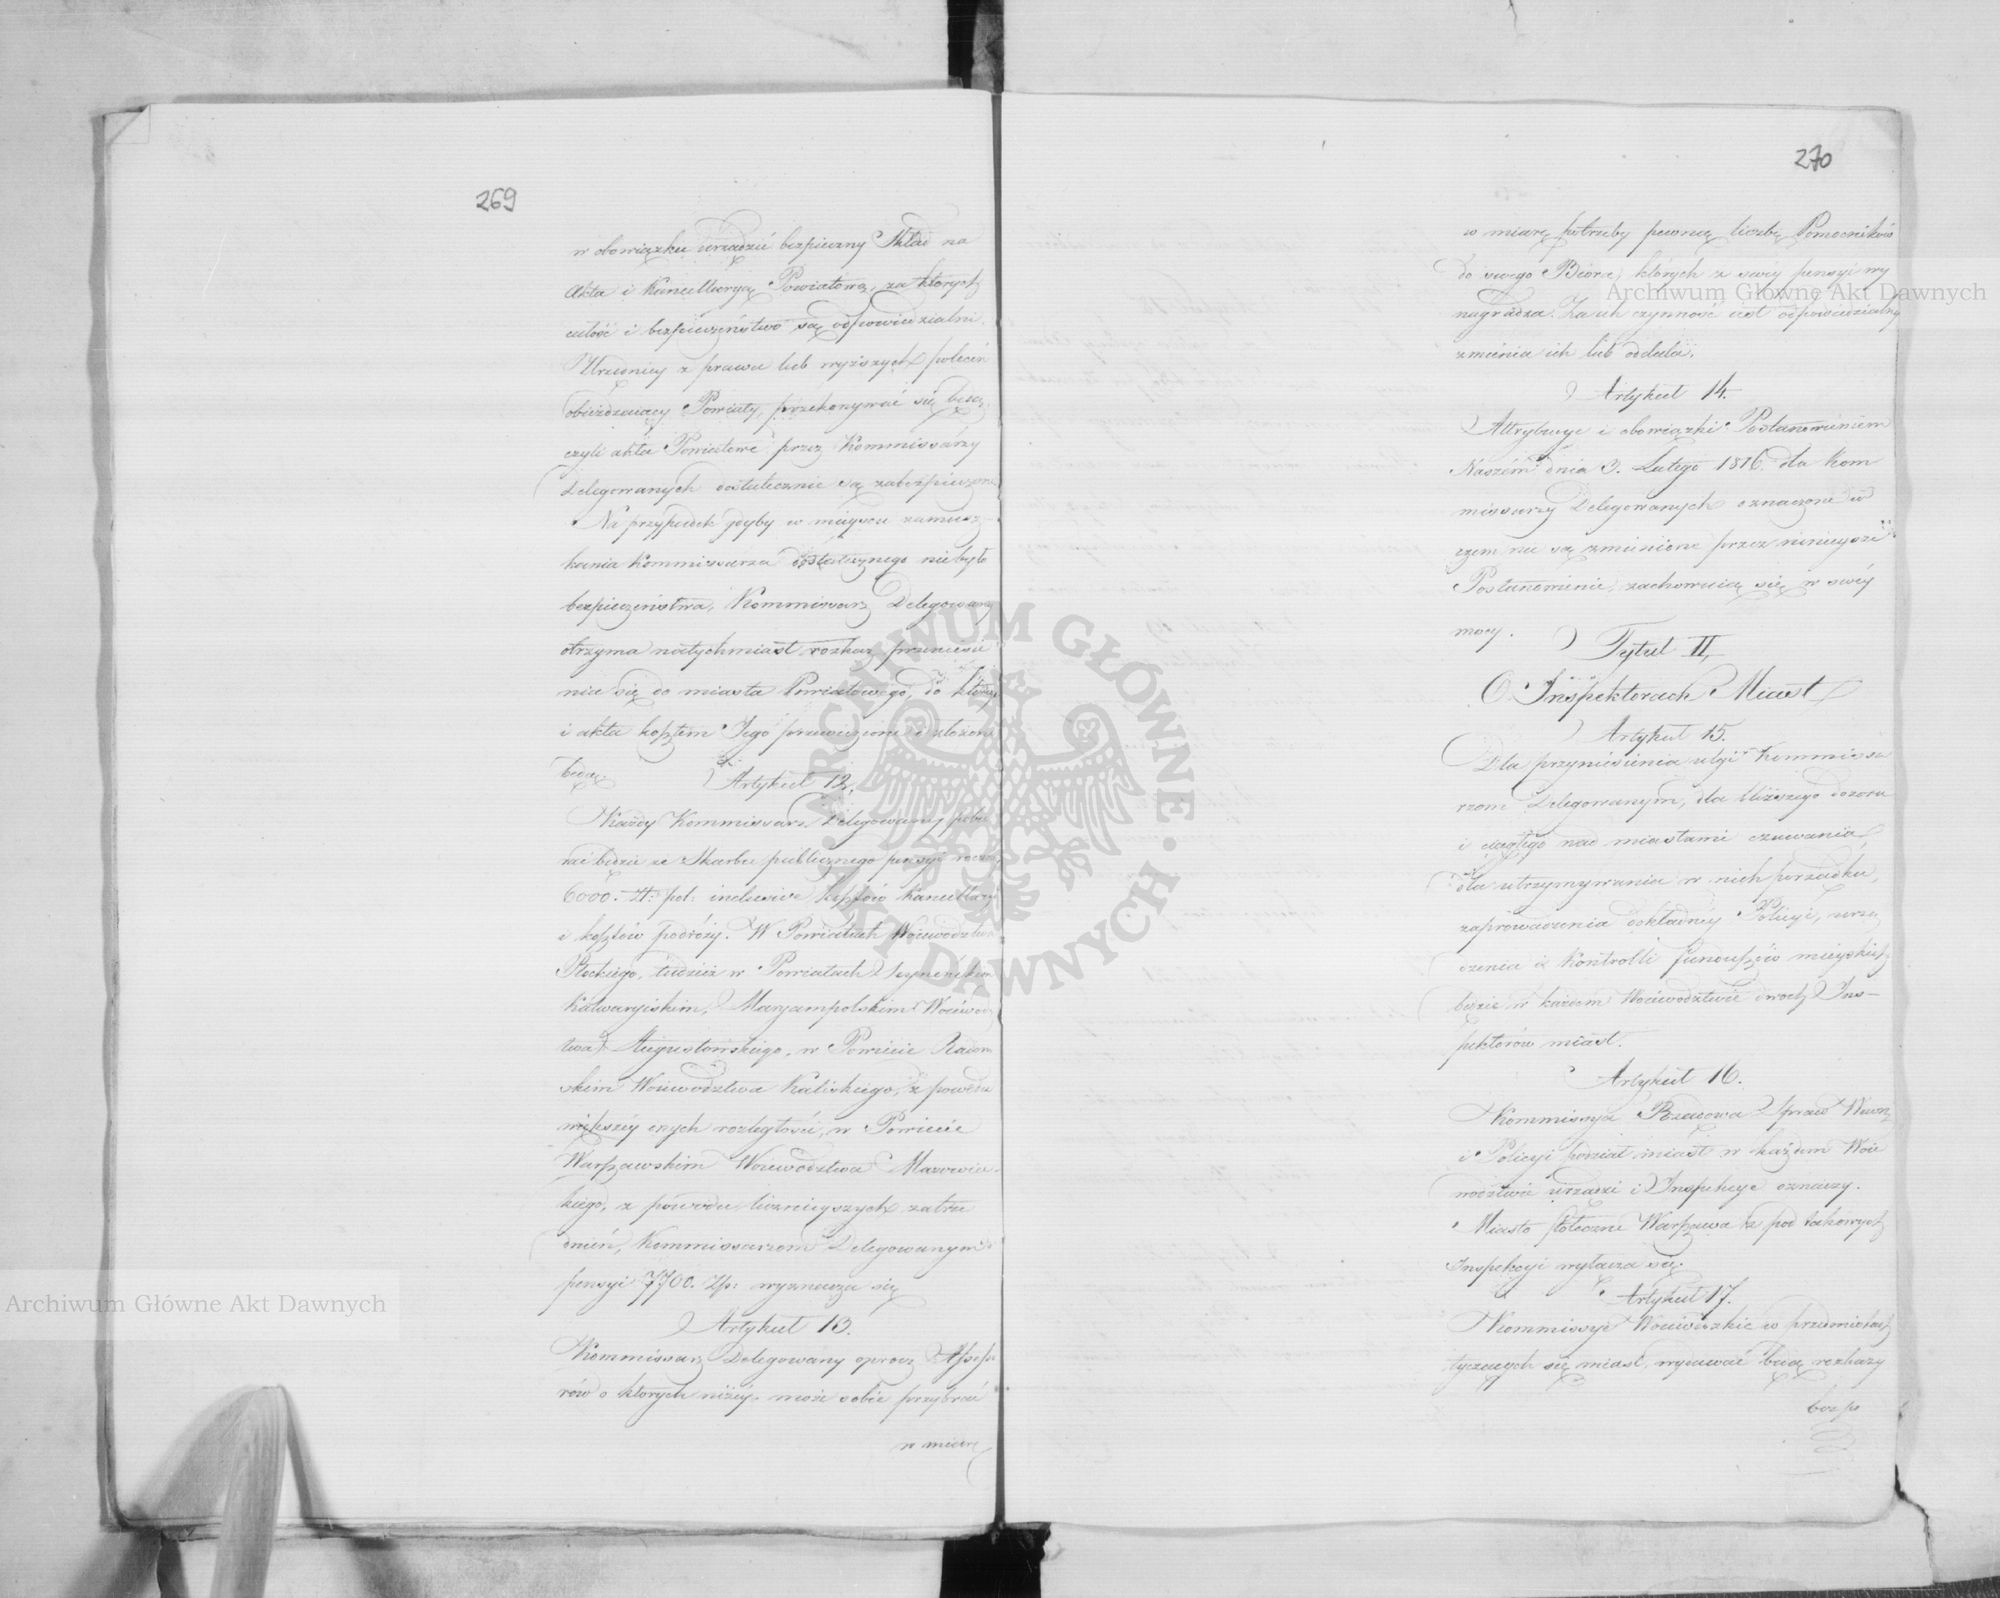 269
w obowiązku urządzić bezpieczny Skład na
Akta i Kancellaryą Powiatową, za których
całość i bezpieczeństwo są odpowiedzialni.
Urzędnicy z prawa lub wyższych poleceń
obieżdzaiący Powiaty, przekonywać się będą,
czyli akta Powiatowe przez Kommissarzy
Delegowanych dostatecznie są zabezpieczone
Na przypadek gdyby w mieyscu zamiesz-
kania Kommissarza dostatecznego nie było
bezpieczeństwa, Kommissarz Delegowany
otrzyma natychmiast rozkaz przeniesie
nia się do miasta Powiatowego, do którego
i akta kosztem Jego przewiezione i złożone
będą.
Artykuł 12.
Każdy Kommissarz Delegowany pobie
rać będzie ze Skarbu publicznego pensyi roczn.
6000. Zł: pol: inclusive kosztów Kancellaryi
i kosztów podróży. W Powiatach Woiewodztwa
Płockiego, tudzież w Powiatach Seyneńskim
Kalwaryiskim, Maryampolskim Woiewodz
twa Augustowskiego, w Powiecie Radom
skim Woiewodztwa Kaliskiego, z powodu
większey onych rozległości, w Powiecie
Warszawskim Woiewodztwa Mazowiec-
kiego, z powodu licznieyszych zatru
dnień, Kommissarzom Delegowanym
pensyi 7700. Złp: wyznacza się
Artykuł 13.
Kommissarz Delegowany oprocz Assesso
rów o których niżéy, może sobie przybrać
w miarę
270
w miarę potrzeby pewną liczbę Pomocników
do swego Biora, których z swéy pensyi wy
nagradza. Za ich czynność iest odpowiedzialny
zmienia ich lub oddala.
Artykuł 14.
Attrybucye i obowiązki Postanowieniem
Naszém dnia 3. Lutego 1816. dla Kom
missarzy Delegowanych oznaczone w
czem nie są zmienione przez ninieysze
Postanowienie, zachowuią się w swéy
mocy.
Tytuł II,
O Inspektorach Miast
Artykuł 15.
Dla przyniesienia ulgi Kommissa
rzom Delegowanym, dla bliższego dozoru
i ciągłego nad miastami czuwania,
dla utrzymywania w nich porządku,
zaprowadzenia dokładnéy Policyi, urzą
dzenia i Kontrolli funduszów mieyskich
będzie w każdem Woiewodztwie dwoch Ins-
pektorów miast.
Artykuł 16.
Kommissya Rządowa Spraw Wewn:
i Policyi podział miast w każdem Woie
wodztwie urządzi i Inspekcye oznaczy.
Miasto stołeczne Warszawa z pod takowych
Inspekcyi wyłącza się.
Artykuł 17.
Kommissye Woiewodzkie w przedmiotach
tyczących się miast, wydawać będą rozkazy
bezpo
Archiwum Główne Akt Dawnych
Archiwum Główne Akt Dawnych
ARCHIWUM GŁÓWNE • AKT DAWNYCH •